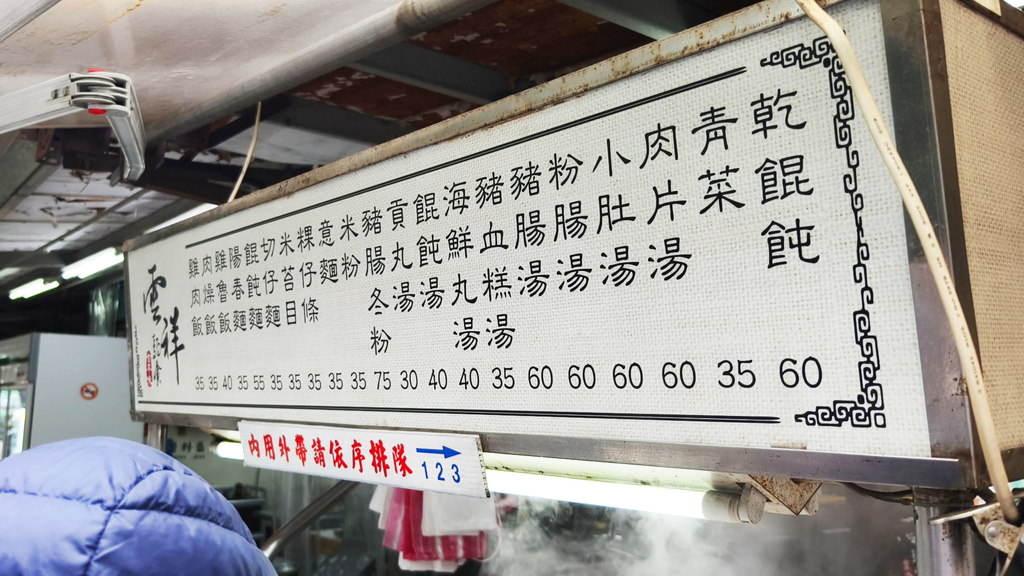 乾餛飩 60
青菜 35
肉片湯 60
小肚湯 60
粉腸湯 60
豬腸湯 60
豬血糕湯 35
海鮮丸湯 40
餛飩湯 40
貢丸湯 30
豬腸冬粉 75
米粉 35
意麵 35
粿仔條 35
米苔目 35
切仔麵 35
餛飩麵 55
陽春麵 35
雞魯飯 40
肉燥飯 35
雞肉飯 35
雲祥
內用外帶請依序排隊 123